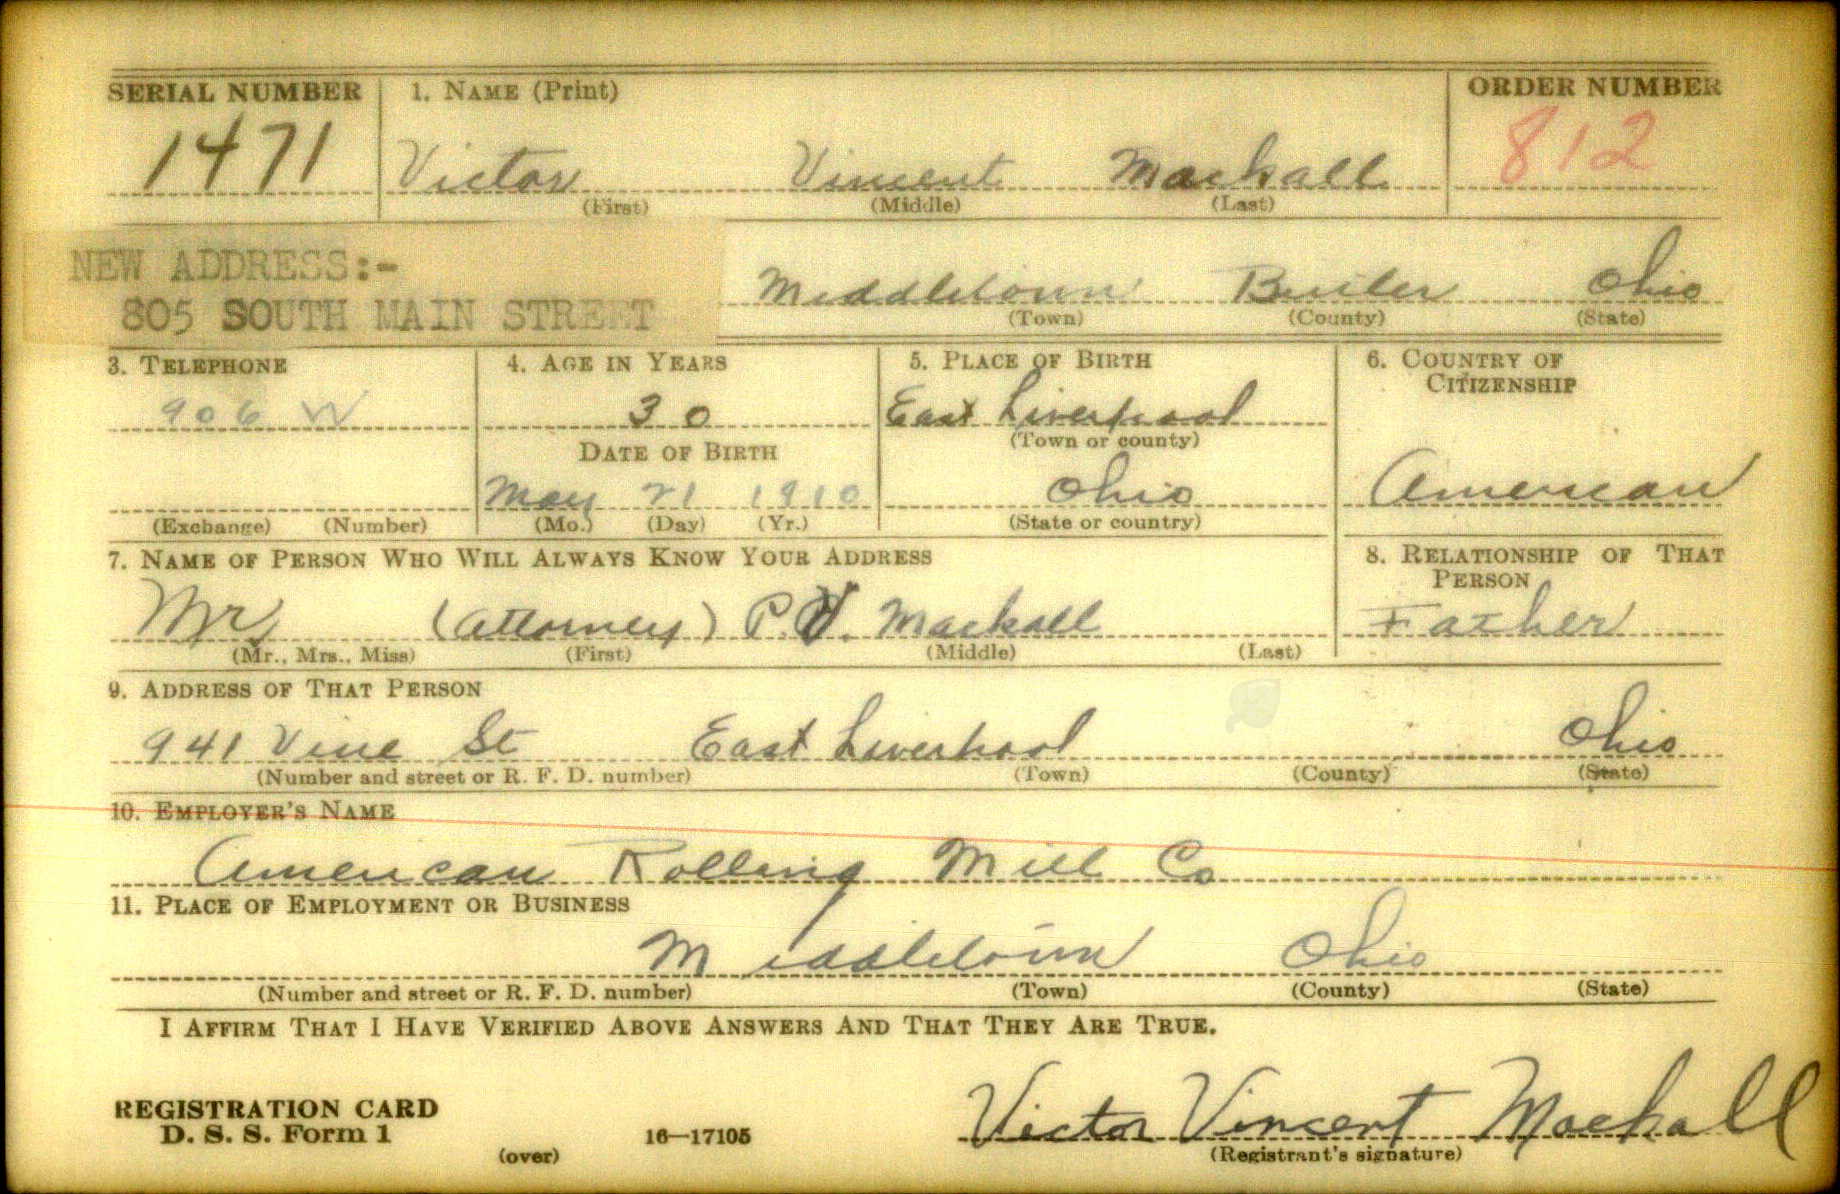 SERIAL NUMBER 1. NAME (Print) ORDER NUMBER
1471 Victor Vincent Mackall 812
(First) (Middle) (Last)
NEW ADDRESS:-
805 SOUTH MAIN STREET Middletown Butler Ohio
(Town) (County) (State)
3. TELEPHONE 4. AGE IN YEARS 5. PLACE OF BIRTH 6. COUNTRY OF CITIZENSHIP
906 W 30 East Liverpool
(Town or county)
DATE OF BIRTH
May 21 1910 Ohio American
(Exchange) (Number) (Mo.) (Day) (Yr.) (State or country)
7. NAME OF PERSON WHO WILL ALWAYS KNOW YOUR ADDRESS 8. RELATIONSHIP OF THAT PERSON
Mr (Attorney) P. V. Mackall Father
(Mr., Mrs., Miss) (First) (Middle) (Last)
9. ADDRESS OF THAT PERSON
941 Vine St East Liverpool Ohio
(Number and street or R. F. D. number) (Town) (County) (State)
10. EMPLOYER'S NAME
American Rolling Mill Co
11. PLACE OF EMPLOYMENT OR BUSINESS
Middletown Ohio
(Number and street or R. F. D. number) (Town) (County) (State)
I AFFIRM THAT I HAVE VERIFIED ABOVE ANSWERS AND THAT THEY ARE TRUE.
REGISTRATION CARD
D. S. S. Form 1 (over) 16—17105 Victor Vincent Mackall
(Registrant's signature)